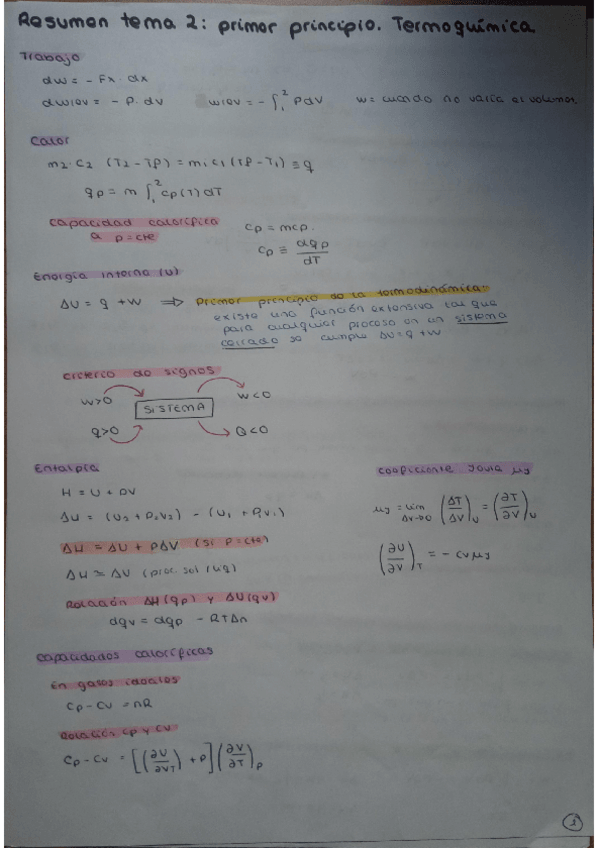 Resumen tema 2: primer principio. Termoquímica.
Trabajo
dw = - Fx · dx
dwrev = - P. dV wrev = - ∫₁² PdV w= cuando no varía el volumen
Calor
m2·c2 (T2-Tf) = m1c1(Tf-T1) ≡ q
qp = m ∫₁² cp(T)dT
Capacidad calorífica a p=cte
Cp = mcp.
Cp ≡ dqp/dT
Energía interna (U)
ΔU = q + w ⇒ Primer principio de la termodinámica:
existe una función extensiva tal que
para cualquier proceso en un sistema
cerrado se cumple ΔU= q + w
Criterio de signos
w>0 SISTEMA w<0
q>0 Q<0
Entalpía
H = U + PV
ΔH = (U2 + P2V2) - (U1 + P1V1)
ΔH = ΔU + PΔV (si P=cte)
ΔH ≃ ΔU (proc. sol/líq)
Relación ΔH(qp) y ΔU(qv)
dqv = dqp - RTΔn
Coeficiente Joule μJ
μJ = lim ΔV→0 (ΔT/ΔV)U = (∂T/∂V)U
(∂U/∂V)T = - CvμJ
Capacidades caloríficas
En gases ideales
Cp - Cv = nR
Relación Cp y Cv
Cp - Cv = [(∂U/∂VT) + P](∂V/∂T)P
1